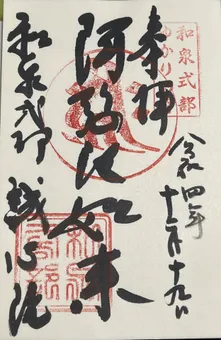 奉拝
和泉式部
ゆかり
令和四年
十二月十九日
阿弥陀如来
和泉式部
誠心院